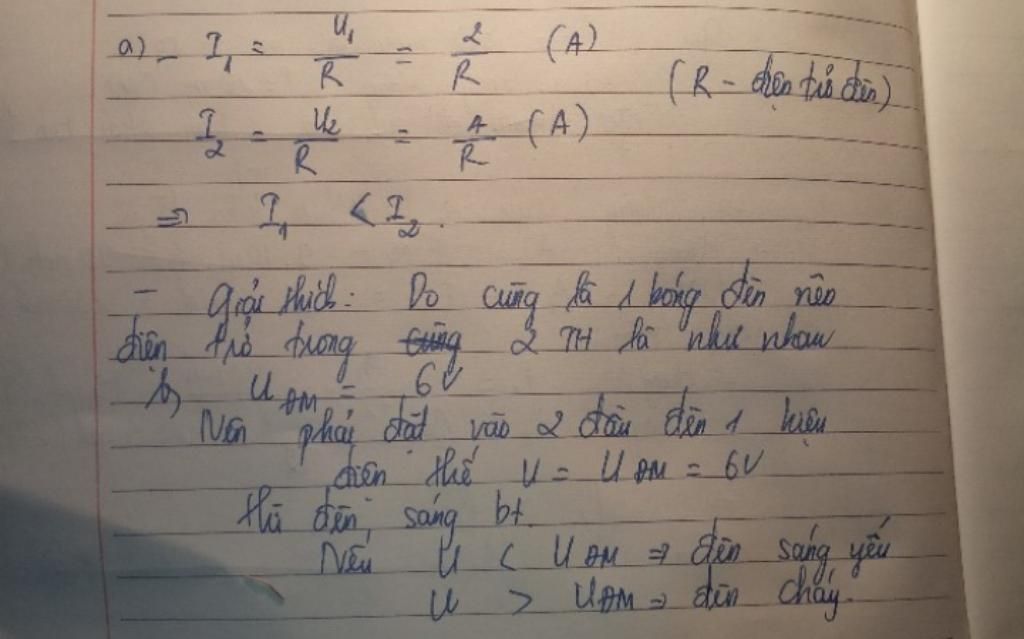 a) - I₁ = U₁/R = 2/R (A)
(R - điện trở đèn)
I₂ = U₂/R = 4/R (A)
=> I₁ < I₂.
- Giải thích: Do cùng là 1 bóng đèn nên
điện trở trong cùng 2 TH là như nhau
b, U ĐM = 6V
Nên phải đặt vào 2 đầu đèn 1 hiệu
điện thế U = U ĐM = 6V
thì đèn sáng bt.
Nếu U < U ĐM => đèn sáng yếu
U > U ĐM => đèn cháy.